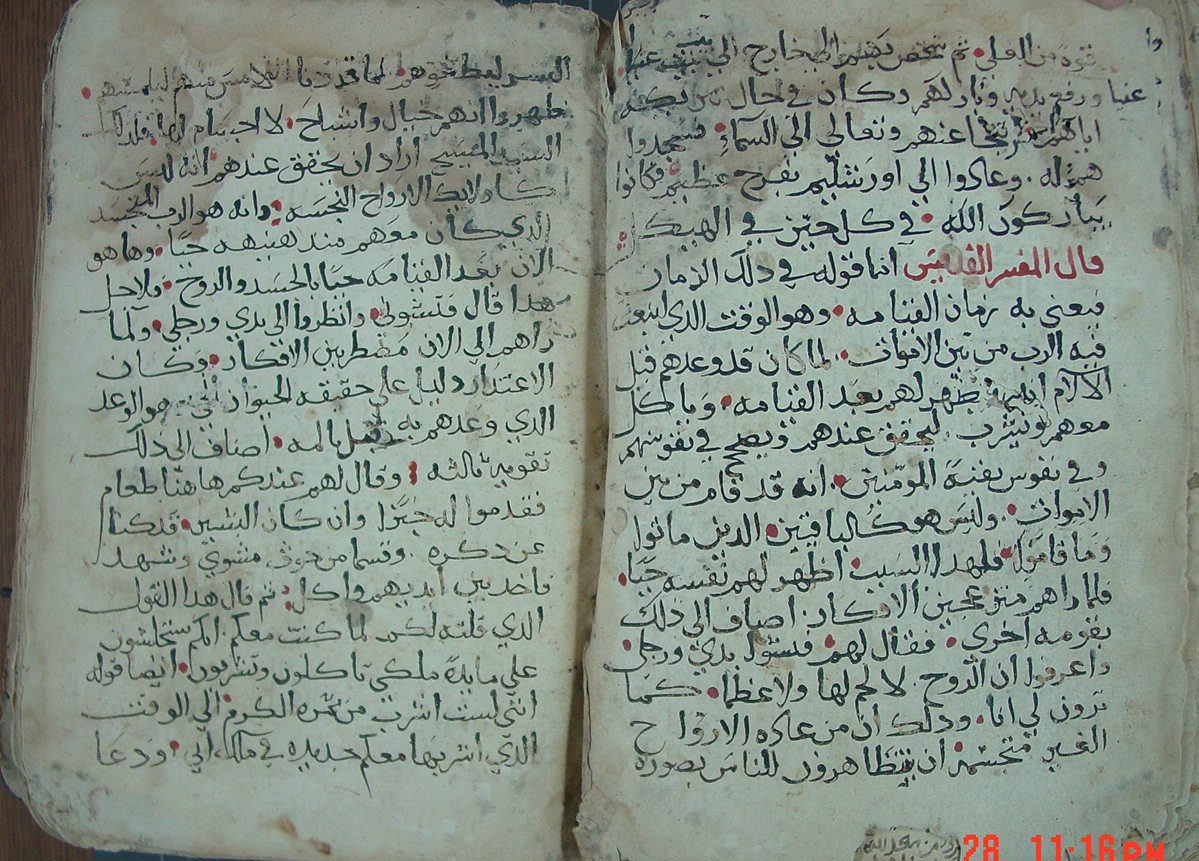 قوه من العلي. ثم شخص بهم الي خارج الي بيت عنيا
ورفع يديه وباركهم وكان في حال تبريكه
اياهم تنحا عنهم وتعالي الي السماء فسجدوا
هم له. وعادوا الي اورشليم بفرح عظيم فكانوا
يباركون الله في كل حين في الهيكل
قال المفسر القديس انما قوله في دلك الزمان
فيعني به زمان القيامه وهو الوقت الدي انبعث
فيه الرب من بين الاموات. لما كان قد وعدهم قبل
الالام انه يظهر لهم بعد القيامه وياكل
معهم ويشرب ليحقق عندهم ويصحح في نفوسهم
وفي نفوس بقية المومنين. انه قد قام من بين
الاموات. وليس هو كالباقيين الدين ماتوا
وما قاموا فلهدا السبب اظهر لهم نفسه حيا.
فلما راهم منزعجين الافكار اضاف الي دلك
تقومه اخري. فقال لهم فتشوا يدي ورجلي
واعرفوا ان الروح لا لحم لها ولا عظما. كما
ترون لي انا. ودلك ان من عاده الارواح
الغير متجسمة ان يتظاهرون للناس بصورة
البشر
ظهروا انهم خيال واشباح. لا اجسام لها فلدلك
السيد المسيح اراد ان يحقق عندهم انه ليس
كاولايك الارواح النجسه وانه هو الرب المتجسد
الدي كان معهم مند هنيهه حيا. وها هو
الان بعد القيامه حيا بالجسد والروح. فلاجل
هدا قال فتشوني وانظروا الي يدي ورجلي. ولما
راهم الي الان مضطربين الافكار. وكان
الاغتدا دليل علي حقيقه الحيوان هو الوعد
الدي وعدهم به قبل بالمه. اضاف الي دلك
تقومه تالته وقال لهم عندكم هاهنا طعام
فقدموا له خبزا وان كان البشير قد كنا
عن دكره. وقسما من حوت مشوي وشهد
فاخد بين ايديهم واكل. تم قال هدا القول
الدي قلته لكم لما كنت معكم. انكم ستجلسون
علي مايدة ملكي تاكلون وتشربون. ايضا قوله
انني لست اشرب من تمره الكرم الي الوقت
الدي اشربها معكم جديده في ملك ابي. ودعا
28 11:16 PM